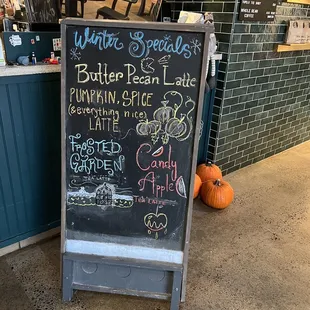 Winter Specials
Butter Pecan Latte
PUMPKIN, SPICE
(& everything nice)
LATTE
FROSTED
GARDEN
TEA LATTE
Candy
Apple
WHOLE BEAN